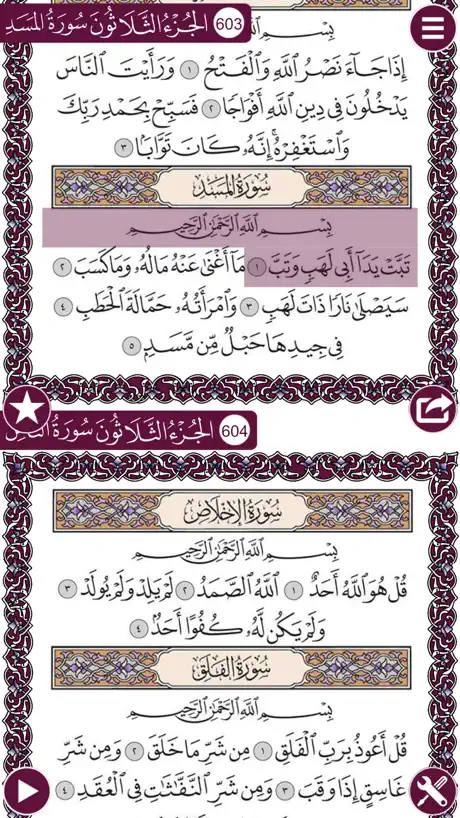 الجُزْءُ الثَّلَاثُونَ سُورَةُ المَسَدِ 603
بِسْمِ اللَّهِ
إِذَا جَآءَ نَصْرُ اللَّهِ وَالْفَتْحُ ١ وَرَأَيْتَ النَّاسَ
يَدْخُلُونَ فِي دِينِ اللَّهِ أَفْوَاجًا ٢ فَسَبِّحْ بِحَمْدِ رَبِّكَ
وَاسْتَغْفِرْهُ ۚ إِنَّهُۥ كَانَ تَوَّابًۢا ٣
سُورَةُ المَسَدِ
بِسْمِ اللَّهِ الرَّحْمَٰنِ الرَّحِيمِ
تَبَّتْ يَدَآ أَبِي لَهَبٍ وَتَبَّ ١ مَآ أَغْنَىٰ عَنْهُ مَالُهُۥ وَمَا كَسَبَ ٢
سَيَصْلَىٰ نَارًا ذَاتَ لَهَبٍ ٣ وَامْرَأَتُهُۥ حَمَّالَةَ الْحَطَبِ ٤
فِي جِيدِهَا حَبْلٌ مِّن مَّسَدٍۭ ٥
الجُزْءُ الثَّلَاثُونَ سُورَةُ 604
سُورَةُ الإِخْلَاصِ
بِسْمِ اللَّهِ الرَّحْمَٰنِ الرَّحِيمِ
قُلْ هُوَ اللَّهُ أَحَدٌ ١ اللَّهُ الصَّمَدُ ٢ لَمْ يَلِدْ وَلَمْ يُولَدْ ٣
وَلَمْ يَكُن لَّهُۥ كُفُوًا أَحَدٌۢ ٤
سُورَةُ الفَلَقِ
بِسْمِ اللَّهِ الرَّحْمَٰنِ الرَّحِيمِ
قُلْ أَعُوذُ بِرَبِّ الْفَلَقِ ١ مِن شَرِّ مَا خَلَقَ ٢ وَمِن شَرِّ
غَاسِقٍ إِذَا وَقَبَ ٣ وَمِن شَرِّ النَّفَّاثَاتِ فِي الْعُقَدِ ٤